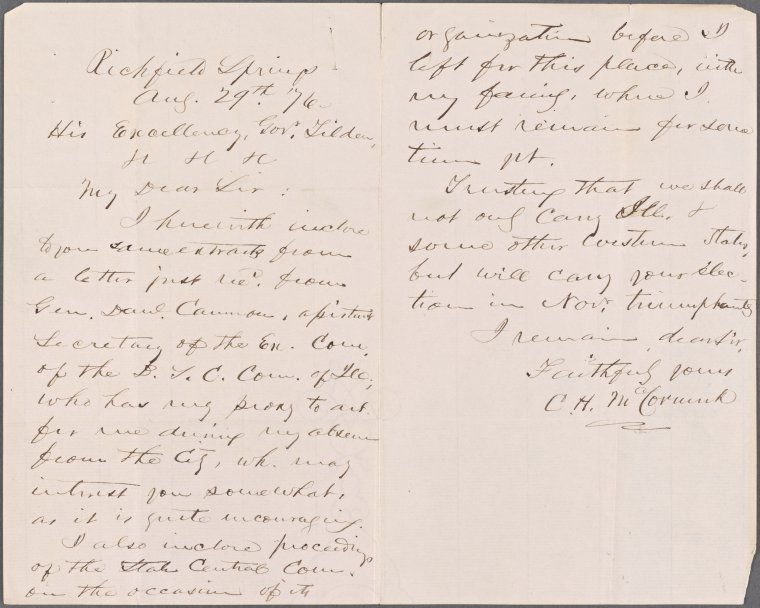 Richfield Springs
Aug. 29th. 76.
His Excellency, Gov. Tilden,
My Dear Sir:
I herewith inclose
to you some extracts from
a letter just rec'd. from
Gen. Danl. Cameron, assistant
Secretary of the Ex. Com.
of the D. S. C. Com. of Ill.,
who has my proxy to act
for me during my absence
from the City, wh. may
interest you somewhat,
as it is quite encouraging.
I also inclose proceedings
of the State Central Com.
on the occasion of its
organization before I
left for this place, with
my family, where I
must remain for some
time yet.
Trusting that we shall
not only carry Ill. &
some other Western States,
but will carry your elec-
tion in Nov. triumphantly
I remain, dear Sir,
Faithfully yours
C. H. McCormick